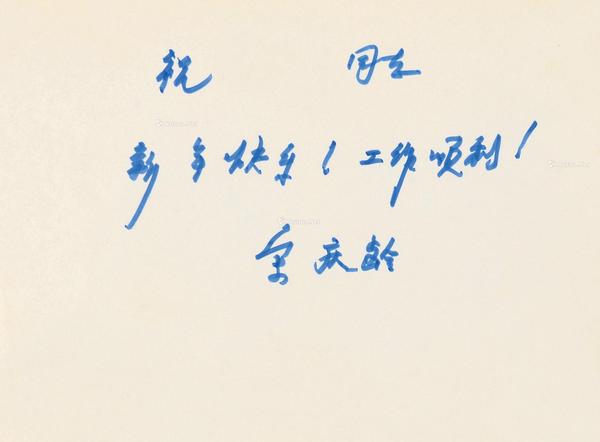 祝 同志
新年快乐！工作顺利！
宋庆龄